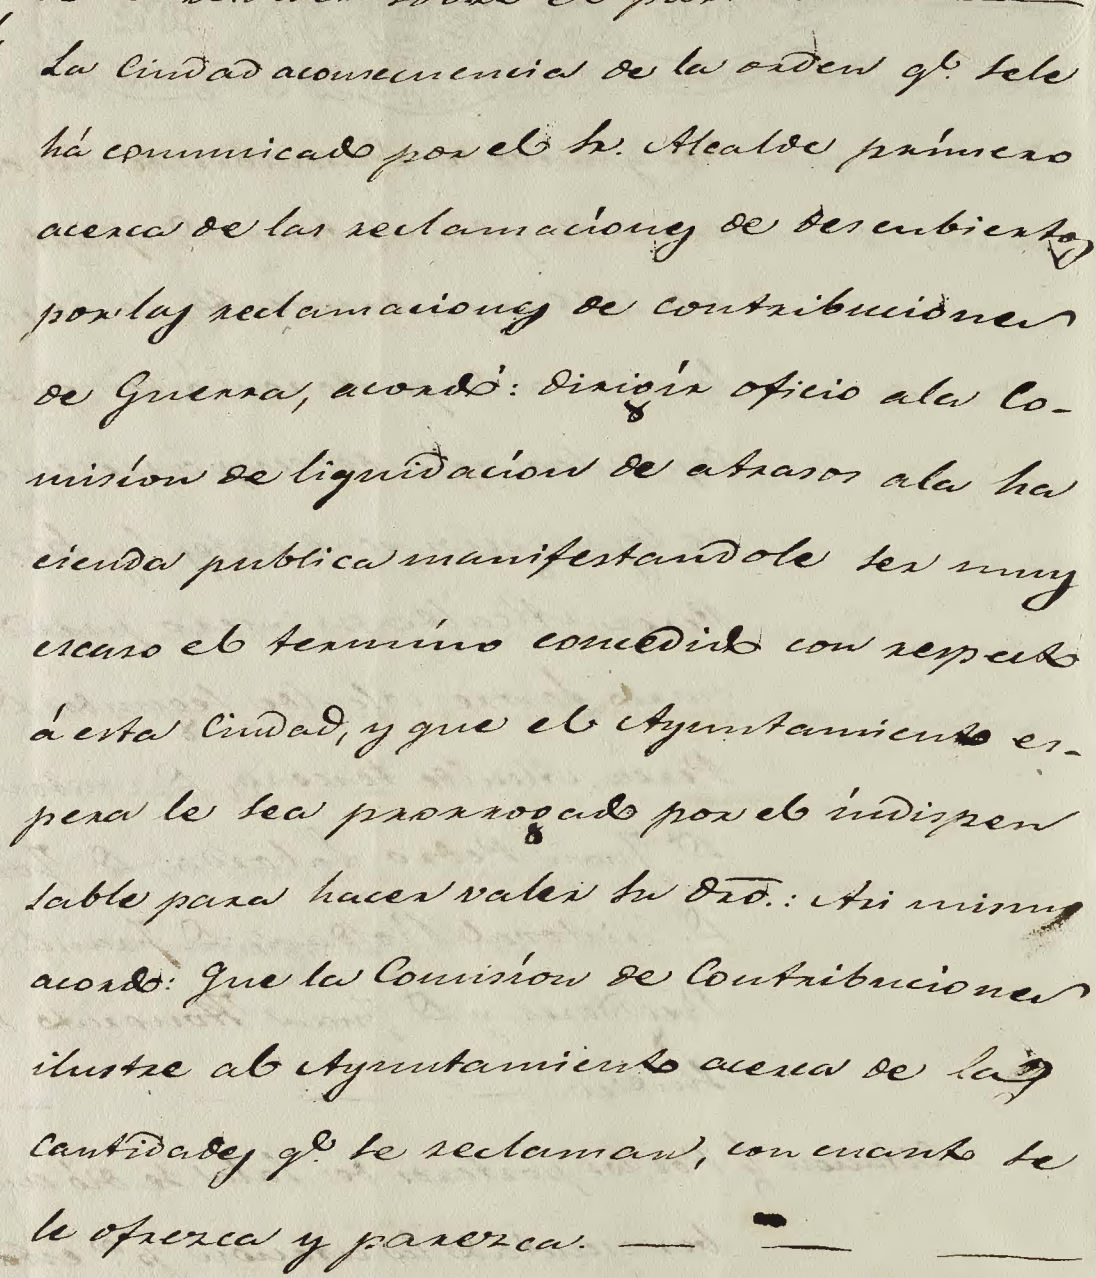 La Ciudad aconsecuencia de la orden qe. sele
há comunicado por el Sr. Alcalde primero
acerca de las reclamaciones de descubiertos
por las reclamaciones de contribuciones
de Guerra, acordó: dirigir oficio ala Co-
mision de liquidacion de atrasos ala ha
cienda publica manifestandole ser muy
escaso el termino concedido con respecto
á esta Ciudad, y que el Ayuntamiento es-
pera le sea prorrogado por el indispen
sable para hacer valer su dro.: Asi mismo
acordo: Que la Comision de Contribuciones
ilustre al Ayuntamiento acerca de las
cantidades qe. se reclaman, con cuanto se
le ofrezca y parezca.